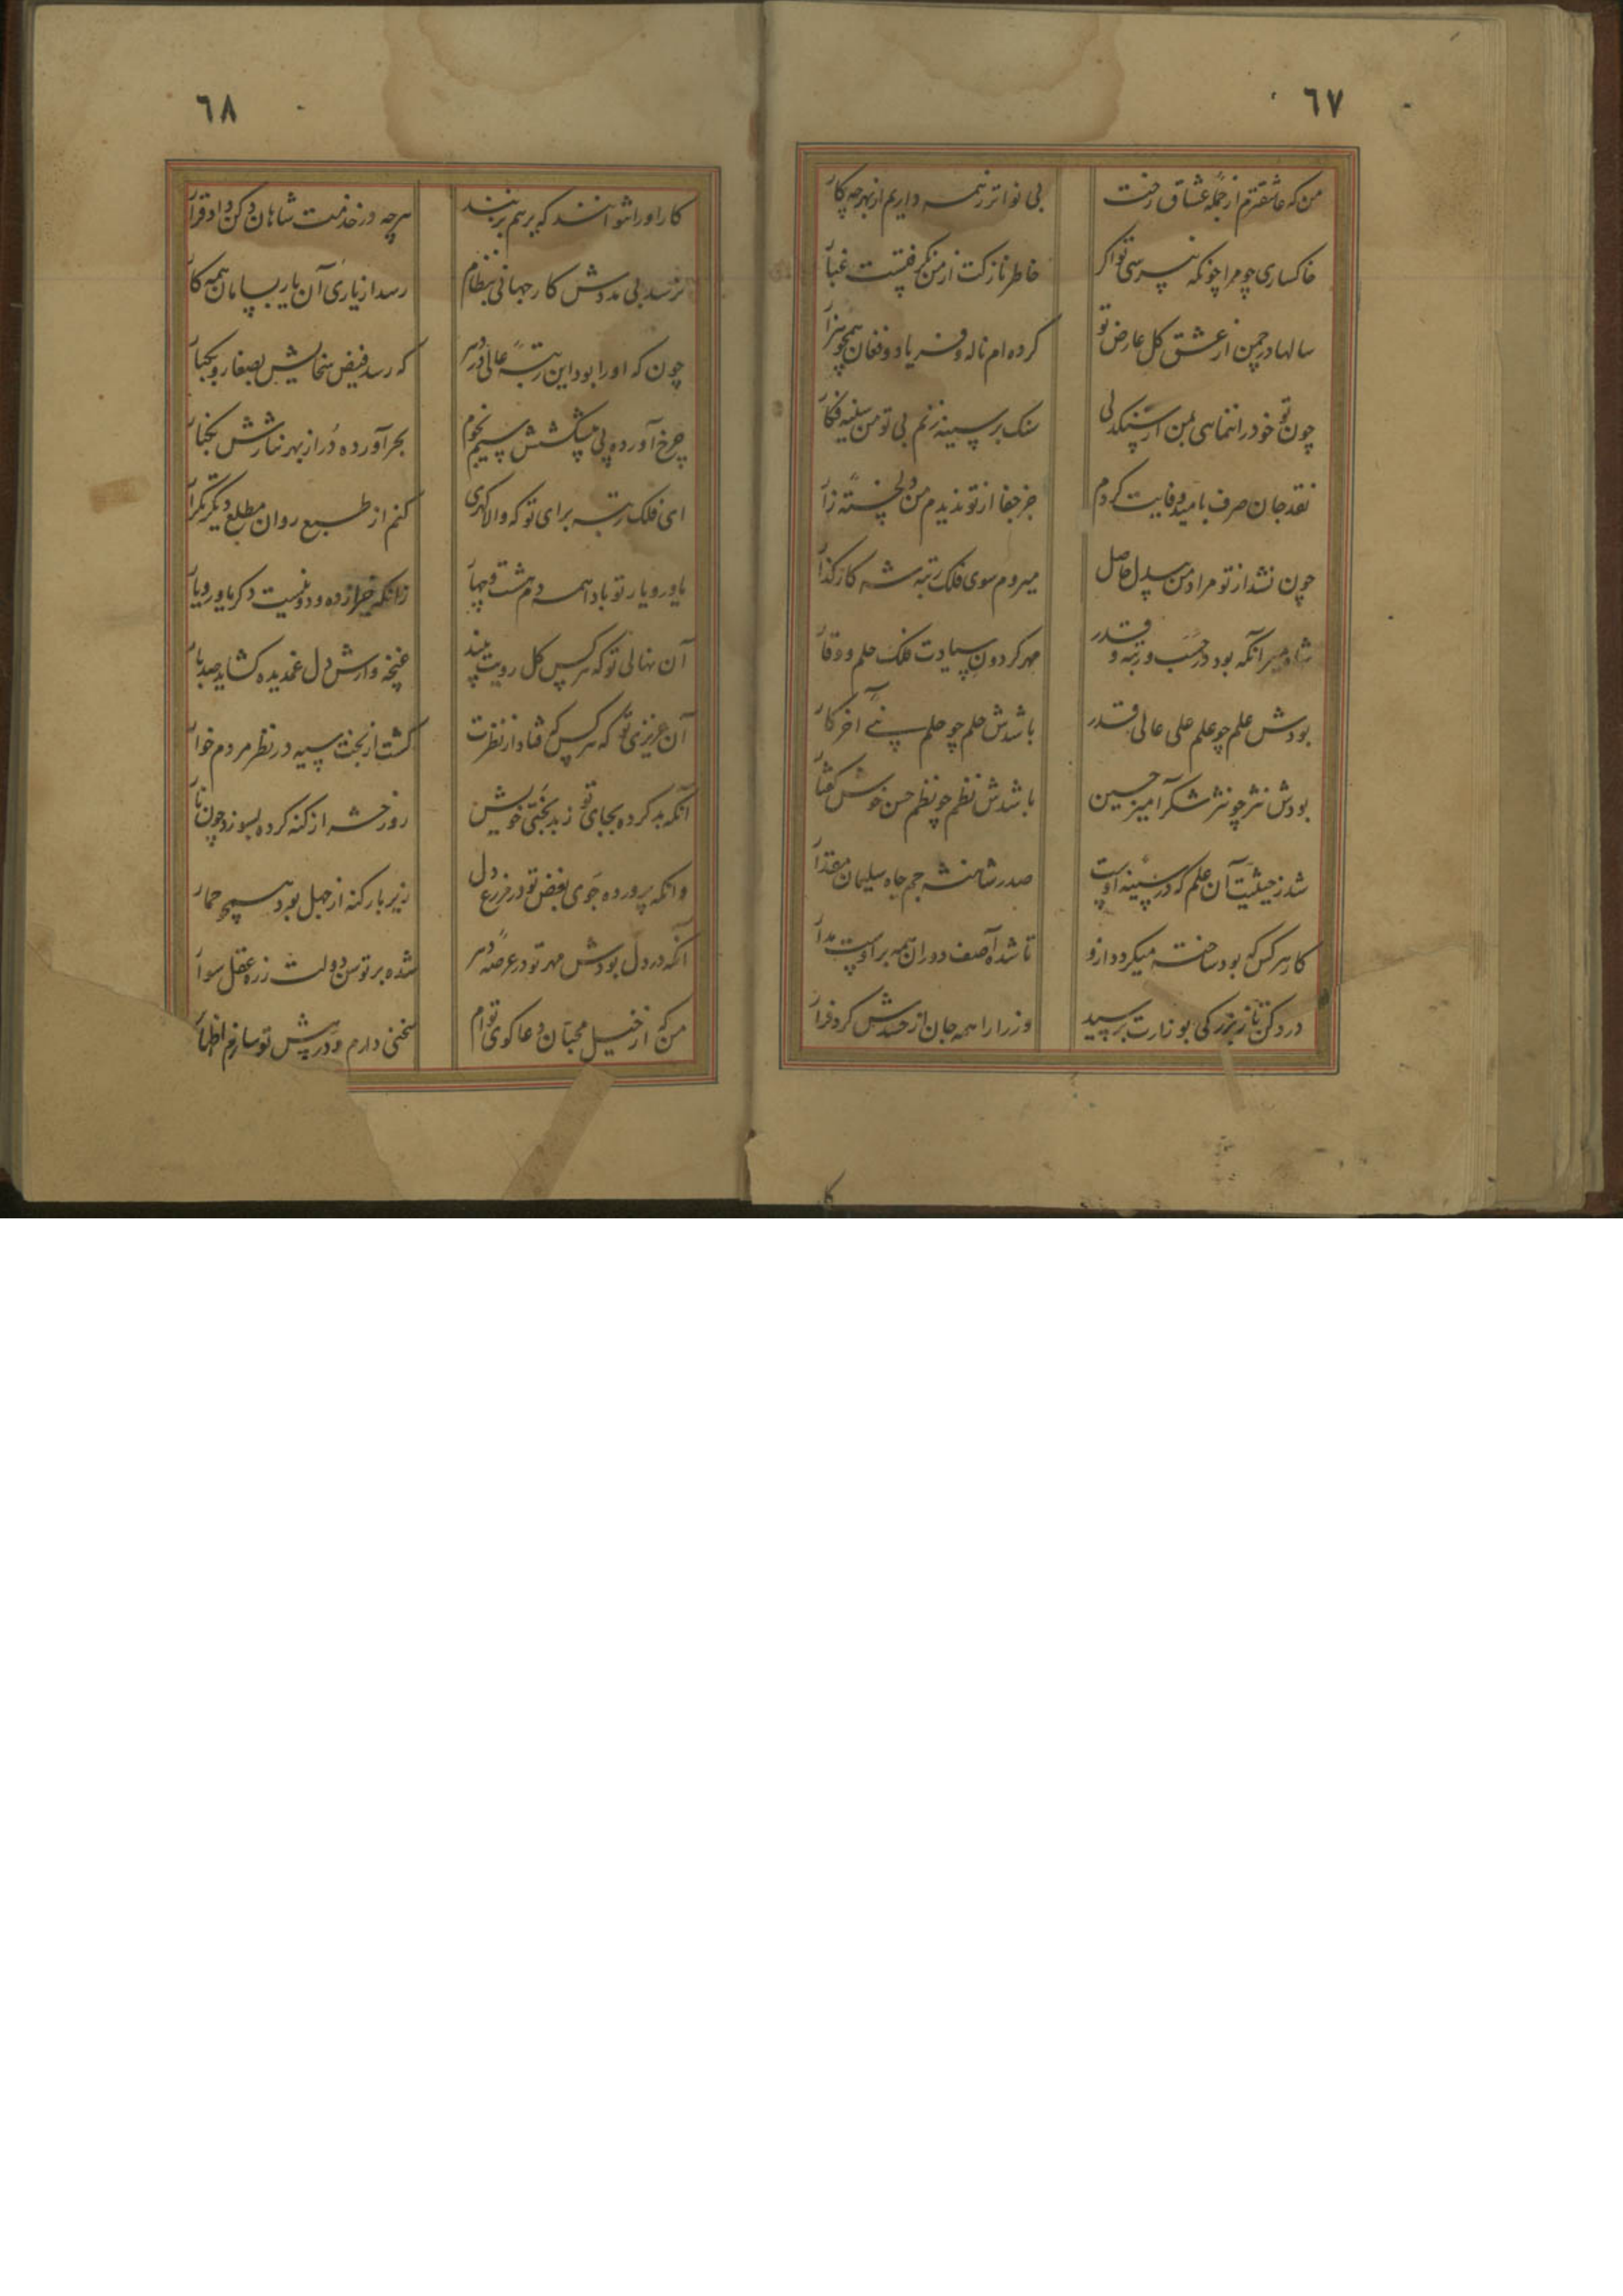 ٦٧
من که عاشقترم از جمله عشاق رخت
بی نواتر ز همه داریم از بهر چه کار
خاکساری چو مرا چونکه نپرسی تو اکر
خاطر نازکت از من نکرفتست غبار
سالها در چمن از عشق کل عارض تو
کرده ام ناله و فریاد و فغان همچو هزار
چون تو خود را ننمایی بمن از سنکدلی
سنک بر سینه زنم بی تو من سینه فکار
نقد جان صرف بامید وفایت کردم
جز جفا از تو ندیدم من دلخسته زار
چون نشد از تو مراد من بیدل حاصل
میروم سوی فلک رتبه شه کارکذار
شاه میر آنکه بود در حسب و رتبه و قدر
مهر کردون سیادت فلک حلم و وقار
بودش علم چو علم علی عالی قدر
باشدش حلم چو حلم نبی آخر کار
بودش نثر چو نثر شکرآمیز حسین
باشدش نظم چو نظم حسن خوش کفتار
شد ز حیثیت آن علم که در سینه اوست
صدر شاهنشه جم جاه سلیمان مقدار
کار هر کس که بود ساخته میکردد ازو
تا شده آصف دوران همه بر اوست مدار
در دکن تا ز بزرکی بوزارت برسید
وزرا را همه جان از حسدش کرد فرار
٦٨
کار او را نتوانند که بر هم بزنند
هرچه در خدمت شاهان دکن داد قرار
نرسد بی مددش کار جهانی بنظام
رسد از یاری آن یار بسامان همه کار
چون که او را بود این رتبه عالی در دهر
که رسد فیض سخایش بصغار و بکبار
چرخ آورده پی پیشکشش سیم نجوم
بحر آورده در از بهر نثارش بکنار
ای فلک رتبه برای تو که والا کهری
کنم از طبع روان مطلع دیکر تکرار
یاور و یار تو باد همه دم هشت و چهار
زانکه جز از ده و دو نیست دکر یاور و یار
آن نهالی تو که هر کس کل رویت بیند
غنچه وارش دل غمدیده کشاید صد بار
آن عزیزی تو که هر کس که فتاد از نظرت
کشت از بخت سیه در نظر مردم خوار
آنکه بد کرده بجای تو ز بدبختی خویش
روز حشر از کنه کرده بسوزد چون نار
وانکه پرورده جوی بغض تو در مزرع دل
زیر بار کنه از جهل بود همچو حمار
آنکه در دل بودش مهر تو در عرصه دهر
شده بر توسن دولت ز ره عقل سوار
من که از خیل محبان دعاکوی توام
سخنی دارم و در پیش تو سازم اظهار